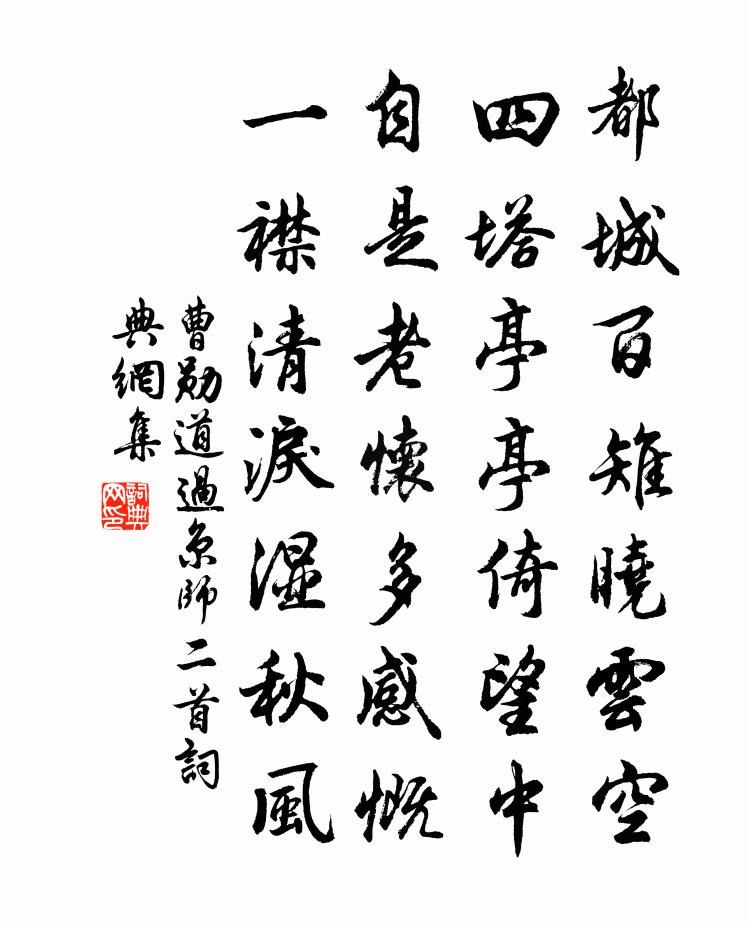 都城百雉曉雲空
四塔亭亭倚望中
自是老懷多感慨
一襟清淚濕秋風
曹勛道過京師二首詞
典網集
詞典
网印